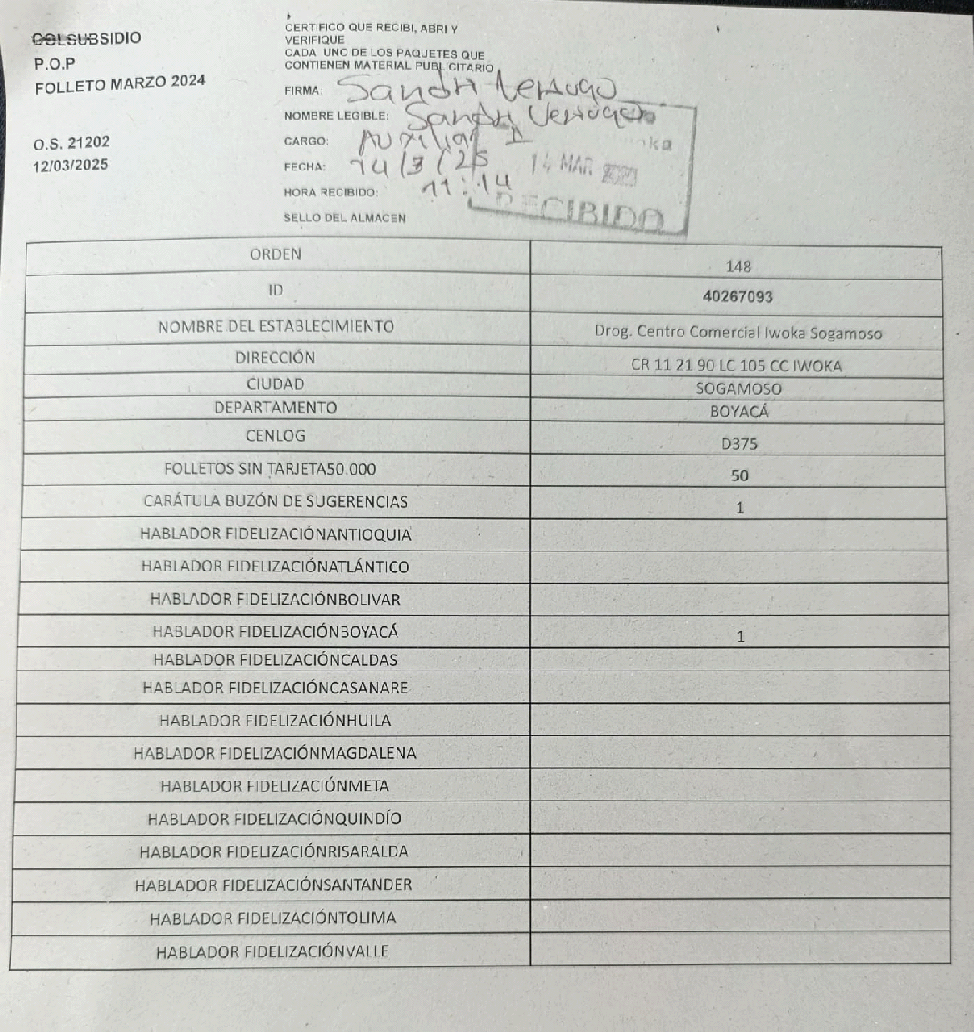 COLSUBSIDIO
P.O.P
FOLLETO MARZO 2024
O.S. 21202
12/03/2025
CERTIFICO QUE RECIBI, ABRI Y
VERIFIQUE
CADA UNC DE LOS PAQUETES QUE
CONTIENEN MATERIAL PUBLICITARIO
FIRMA: Sandra
NOMBRE LEGIBLE: Sandra
CARGO: Auxiliar I
FECHA: 14/3/25
HORA RECIBIDO: 11:14
SELLO DEL ALMACEN
14 MAR
RECIBIDO
ORDEN 148
ID 40267093
NOMBRE DEL ESTABLECIMIENTO Drog. Centro Comercial Iwoka Sogamoso
DIRECCIÓN CR 11 21 90 LC 105 CC IWOKA
CIUDAD SOGAMOSO
DEPARTAMENTO BOYACÁ
CENLOG D375
FOLLETOS SIN TARJETA50.000 50
CARÁTULA BUZÓN DE SUGERENCIAS 1
HABLADOR FIDELIZACIÓNANTIOQUIA
HABLADOR FIDELIZACIÓNATLÁNTICO
HABLADOR FIDELIZACIÓNBOLIVAR
HABLADOR FIDELIZACIÓNBOYACÁ 1
HABLADOR FIDELIZACIÓNCALDAS
HABLADOR FIDELIZACIÓNCASANARE
HABLADOR FIDELIZACIÓNHUILA
HABLADOR FIDELIZACIÓNMAGDALENA
HABLADOR FIDELIZACIÓNMETA
HABLADOR FIDELIZACIÓNQUINDÍO
HABLADOR FIDELIZACIÓNRISARALDA
HABLADOR FIDELIZACIÓNSANTANDER
HABLADOR FIDELIZACIÓNTOLIMA
HABLADOR FIDELIZACIÓNVALLE